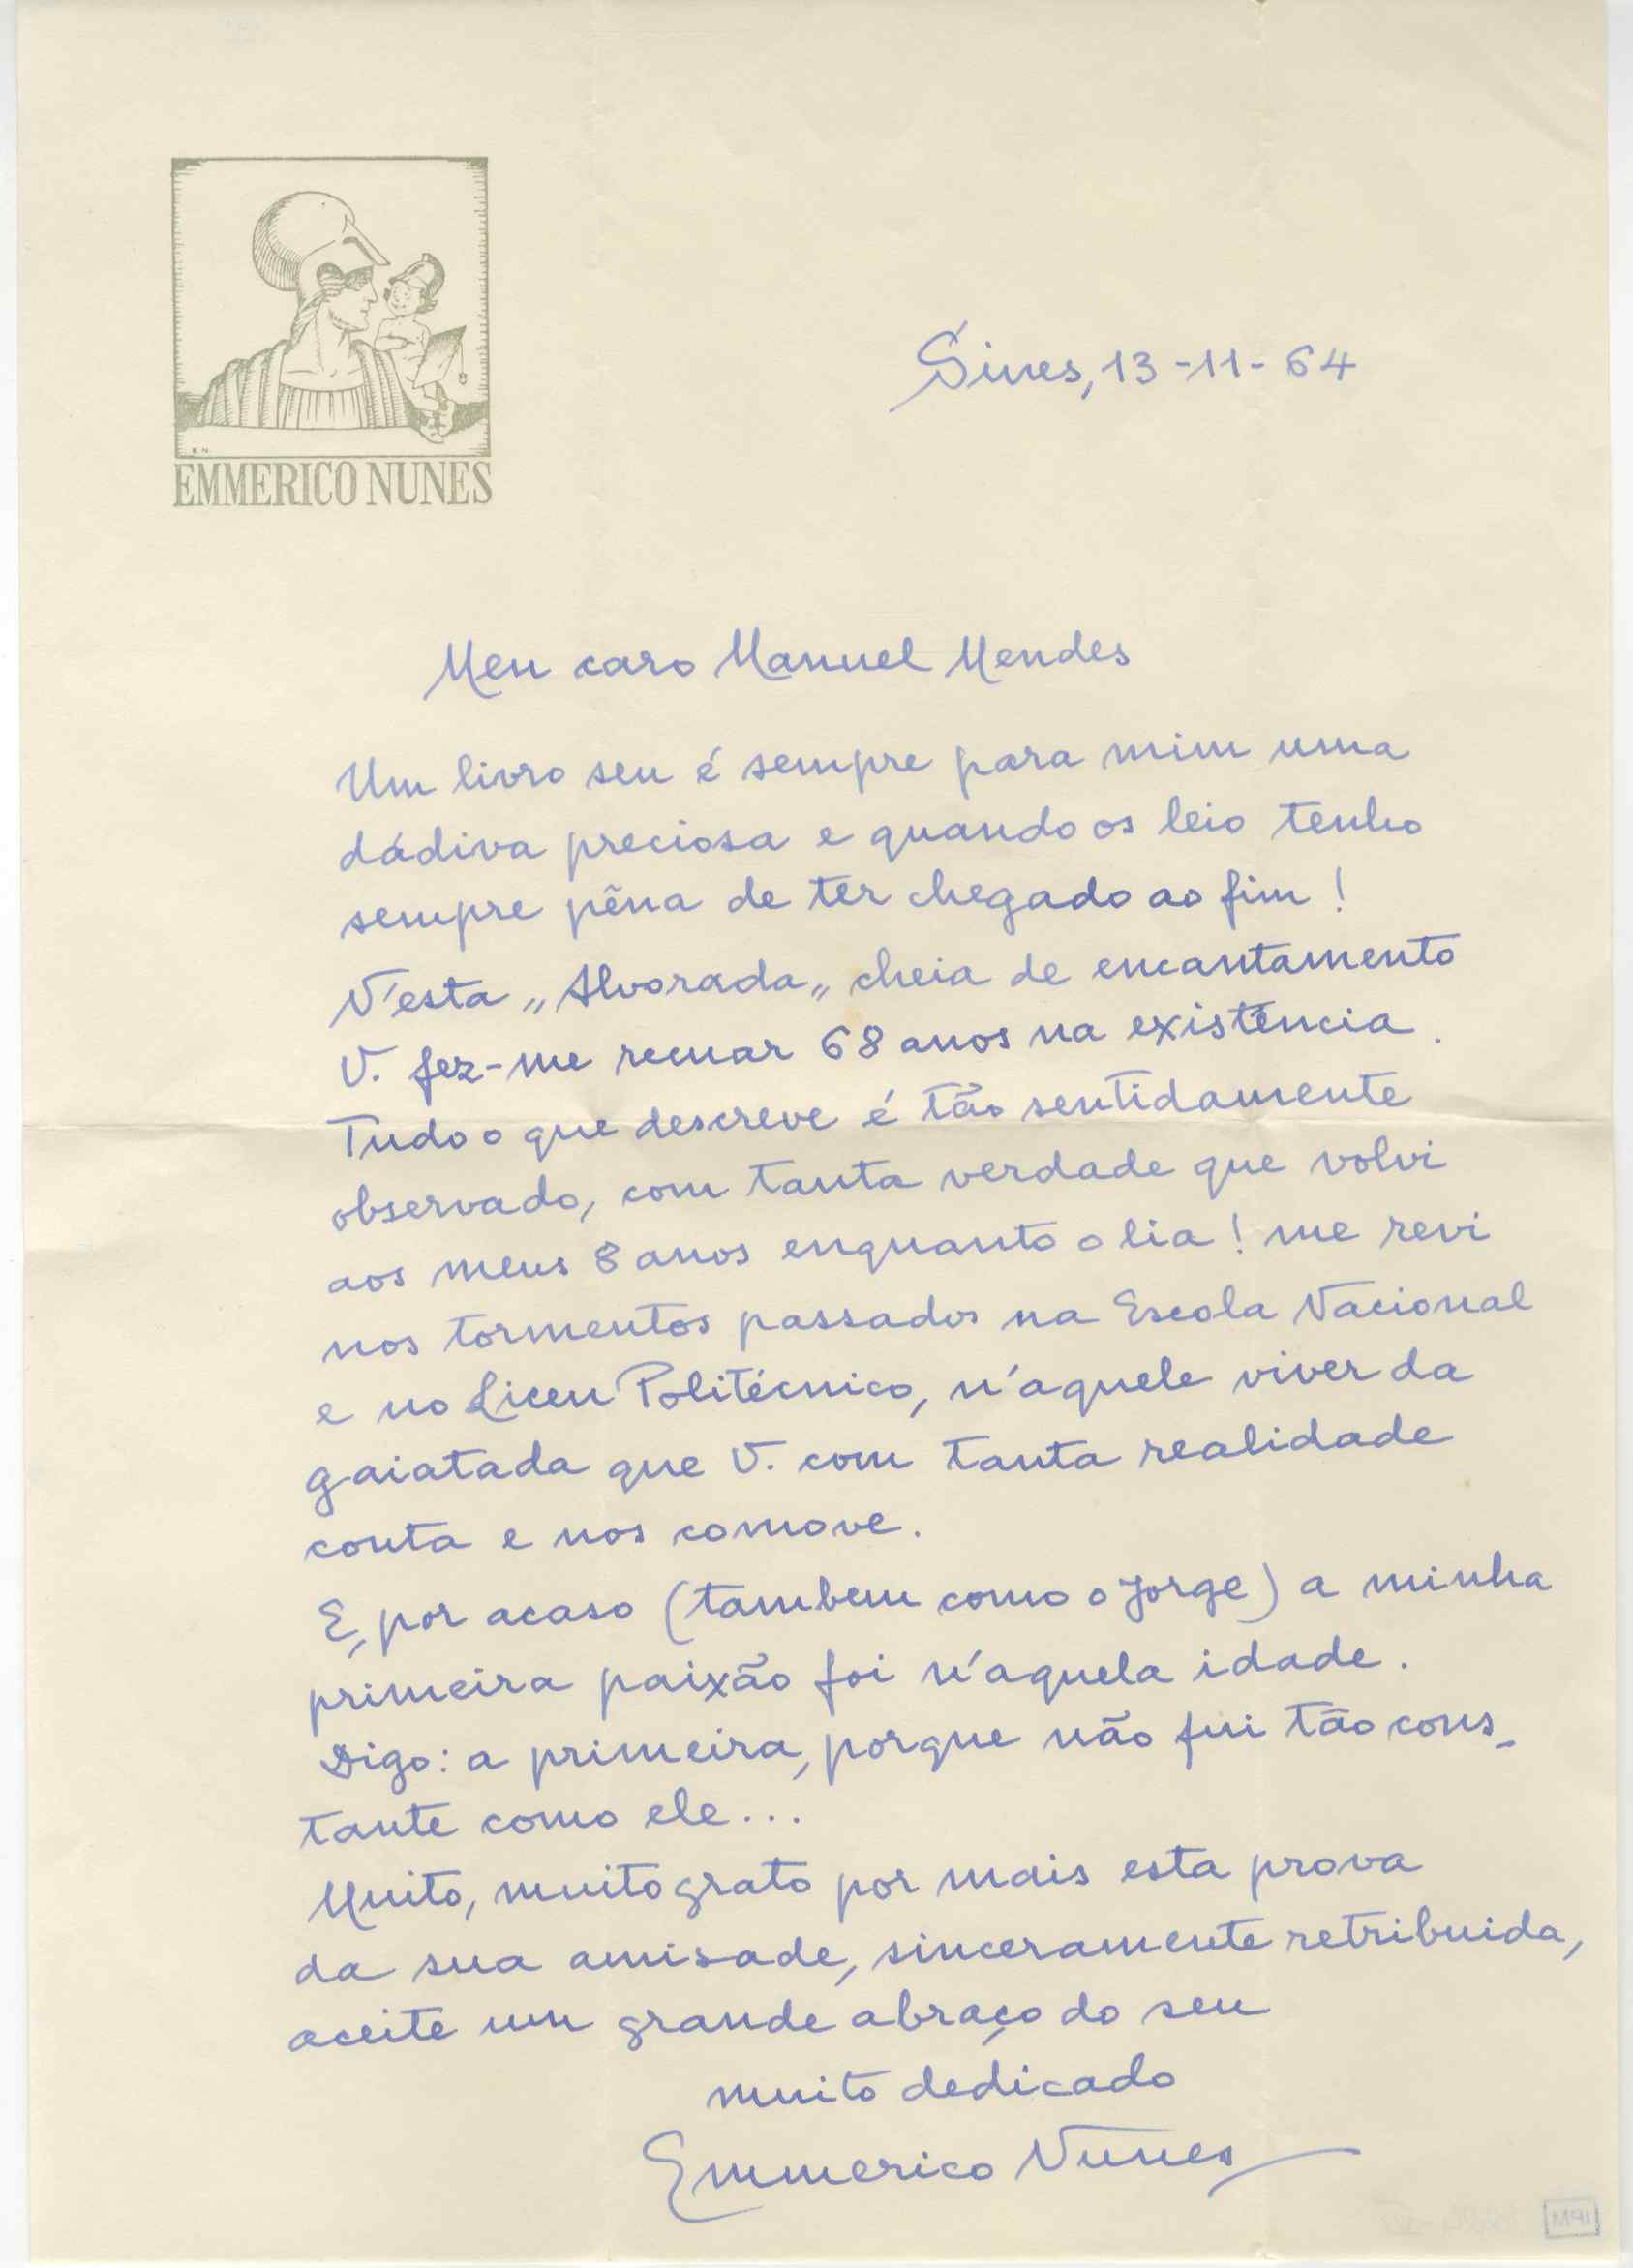 E.N.
EMMERICO NUNES
Sines, 13-11-64
Meu caro Manuel Mendes
Um livro seu é sempre para mim uma
dádiva preciosa e quando os leio tenho
sempre pêna de ter chegado ao fim!
N'esta „Alvorada„ cheia de encantamento
V. fez-me recuar 68 anos na existência.
Tudo o que descreve é tão sentidamente
observado, com tanta verdade que volvi
aos meus 8 anos enquanto o lia! me revi
nos tormentos passados na Escola Nacional
e no Liceu Politécnico, n'aquele viver da
gaiatada que V. com tanta realidade
conta e nos comove.
E, por acaso (tambem como o Jorge) a minha
primeira paixão foi n'aquela idade.
Digo: a primeira, porque não fui tão cons-
tante como ele...
Muito, muito grato por mais esta prova
da sua amisade, sinceramente retribuida,
aceite um grande abraço do seu
muito dedicado
Emmerico Nunes